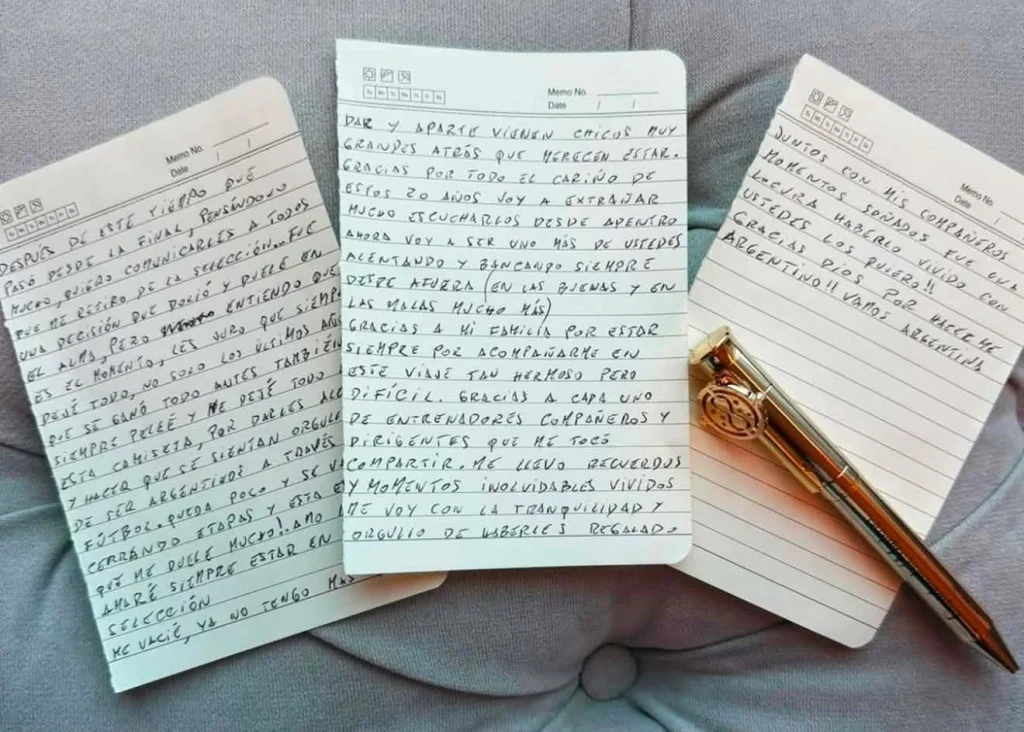 Memo No.
Date / /
DESPUÉS DE ESTE TIEMPO QUE
PASÓ DESDE LA FINAL, PENSÁNDOLO
MUCHO, QUIERO COMUNICARLES A TODOS
QUE ME RETIRO DE LA SELECCIÓN... FUE
UNA DECISIÓN QUE DOLIÓ Y DUELE EN
EL ALMA, PERO ENTIENDO QUE
ES EL MOMENTO, LES JURO QUE
DEJÉ TODO, NO SOLO LOS ÚLTIMOS
QUE SE GANÓ TODO ANTES TAMBIÉN
SIEMPRE PELEÉ Y ME DEJÉ TODO
ESTA CAMISETA, POR DARLES
Y HACER QUE SE SIENTAN
DE SER ARGENTINOS A TRAVÉS
FÚTBOL. QUEDA POCO Y SE
CERRANDO ETAPAS Y ESTA
QUE ME DUELE MUCHO!! AMO
AMARÉ SIEMPRE ESTAR EN
SELECCIÓN
ME VACIÉ, YA NO TENGO MAS
Memo No.
Date / /
DAR Y APARTE VIENEN CHICOS MUY
GRANDES ATRÁS QUE MERECEN ESTAR.
GRACIAS POR TODO EL CARIÑO DE
ESTOS 20 AÑOS VOY A EXTRAÑAR
MUCHO ESCUCHARLOS DESDE ADENTRO
AHORA VOY A SER UNO MÁS DE USTEDES
ALENTANDO Y BANCANDO SIEMPRE
DESDE AFUERA (EN LAS BUENAS Y EN
LAS MALAS MUCHO MÁS)
GRACIAS A MI FAMILIA POR ESTAR
SIEMPRE POR ACOMPAÑARME EN
ESTE VIAJE TAN HERMOSO PERO
DIFÍCIL. GRACIAS A CADA UNO
DE ENTRENADORES COMPAÑEROS Y
DIRIGENTES QUE ME TOCÓ
COMPARTIR. ME LLEVO RECUERDOS
Y MOMENTOS INOLVIDABLES VIVIDOS
ME VOY CON LA TRANQUILIDAD Y
ORGULLO DE HABERLES REGALADO
Memo No.
Date /
JUNTOS CON MIS COMPAÑEROS
MOMENTOS SOÑADOS FUE UNA
LOCURA HABERLO VIVIDO CON
USTEDES LOS QUIERO!!
GRACIAS DIOS POR HACERME
ARGENTINO!! VAMOS ARGENTINA